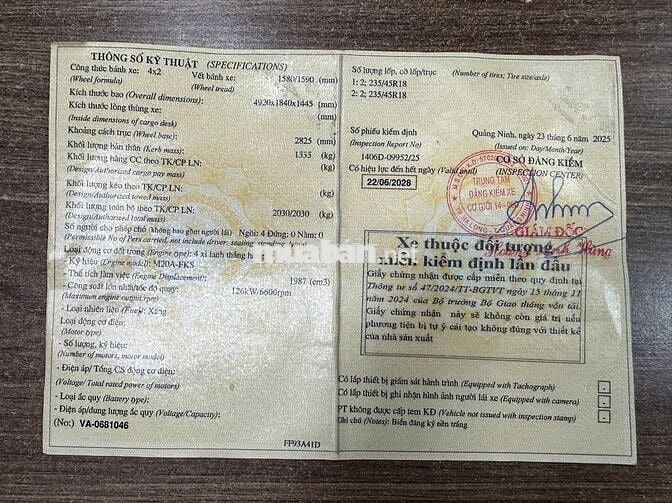 THÔNG SỐ KỸ THUẬT (SPECIFICATIONS)
Công thức bánh xe: 4x2 Vết bánh xe: 1580/1590 (mm)
(Wheel formula) (Wheel tread)
Kích thước bao (Overall dimensions): 4920x1840x1445 (mm)
Kích thước lòng thùng xe: (mm)
(Inside dimensions of cargo deck)
Khoảng cách trục (Wheel base): 2825 (mm)
Khối lượng bản thân (Kerb mass): 1555 (kg)
Khối lượng hàng CC theo TK/CP LN: (kg)
(Design/Authorized cargo pay mass)
Khối lượng kéo theo TK/CP LN: (kg)
(Design/Authorized towed mass)
Khối lượng toàn bộ theo TK/CP LN: 2030/2030 (kg)
(Design/Authorized total mass)
Số người cho phép chở (không bao gồm người lái) Ngồi: 4 Đứng: 0 Nằm: 0
(Permissible No of Pers carried, not include driver: seating
Loại động cơ đốt trong (Engine type): 4 xi lanh thẳng
- Ký hiệu (Engine model): M20A-FKS
- Thể tích làm việc (Engine Displacement): 1987 (cm3)
- Công suất lớn nhất/tốc độ quay: 126kW/6600rpm
(Maximum engine output/rpm)
- Loại nhiên liệu (Fuel): Xăng
Loại động cơ điện:
(Motor type)
- Số lượng, ký hiệu:
(Number of motors, motor model)
- Điện áp/ Tổng CS động cơ điện:
(Voltage/ Total rated power of motors)
- Loại ắc quy (Battery type):
- Điện áp/dung lượng ắc quy (Voltage/Capacity):
(No:) VA-0681046
FF93A41D
Số lượng lốp, cỡ lốp/trục (Number of tires; Tire size/axle)
1: 2; 235/45R18
2: 2; 235/45R18
Số phiếu kiểm định Quảng Ninh, ngày 23 tháng 6 năm 2025
(Inspection Report No) (Issued on: Day/Month/Year)
1406D-09952/25 CƠ SỞ ĐĂNG KIỂM
Có hiệu lực đến hết ngày (Valid until) (INSPECTION CENTER)
22/06/2028
TRUNG TÂM
ĐĂNG KIỂM XE
CƠ GIỚI
GIÁM ĐỐC
Xe thuộc đối tượng
miễn kiểm định lần đầu
Giấy chứng nhận được cấp miễn theo quy định tại
Thông tư số 47/2024/TT-BGTVT ngày 15 tháng 11
năm 2024 của Bộ trưởng Bộ Giao thông vận tải.
Giấy chứng nhận này sẽ không còn giá trị nếu
phương tiện bị tự ý cải tạo không đúng với thiết kế
của nhà sản xuất
Có lắp thiết bị giám sát hành trình (Equipped with Tachograph)
Có lắp thiết bị ghi nhận hình ảnh người lái xe (Equipped with camera)
PT không được cấp tem KĐ (Vehicle not issued with inspection stamp)
Ghi chú (Notes): Biển đăng ký nền trắng